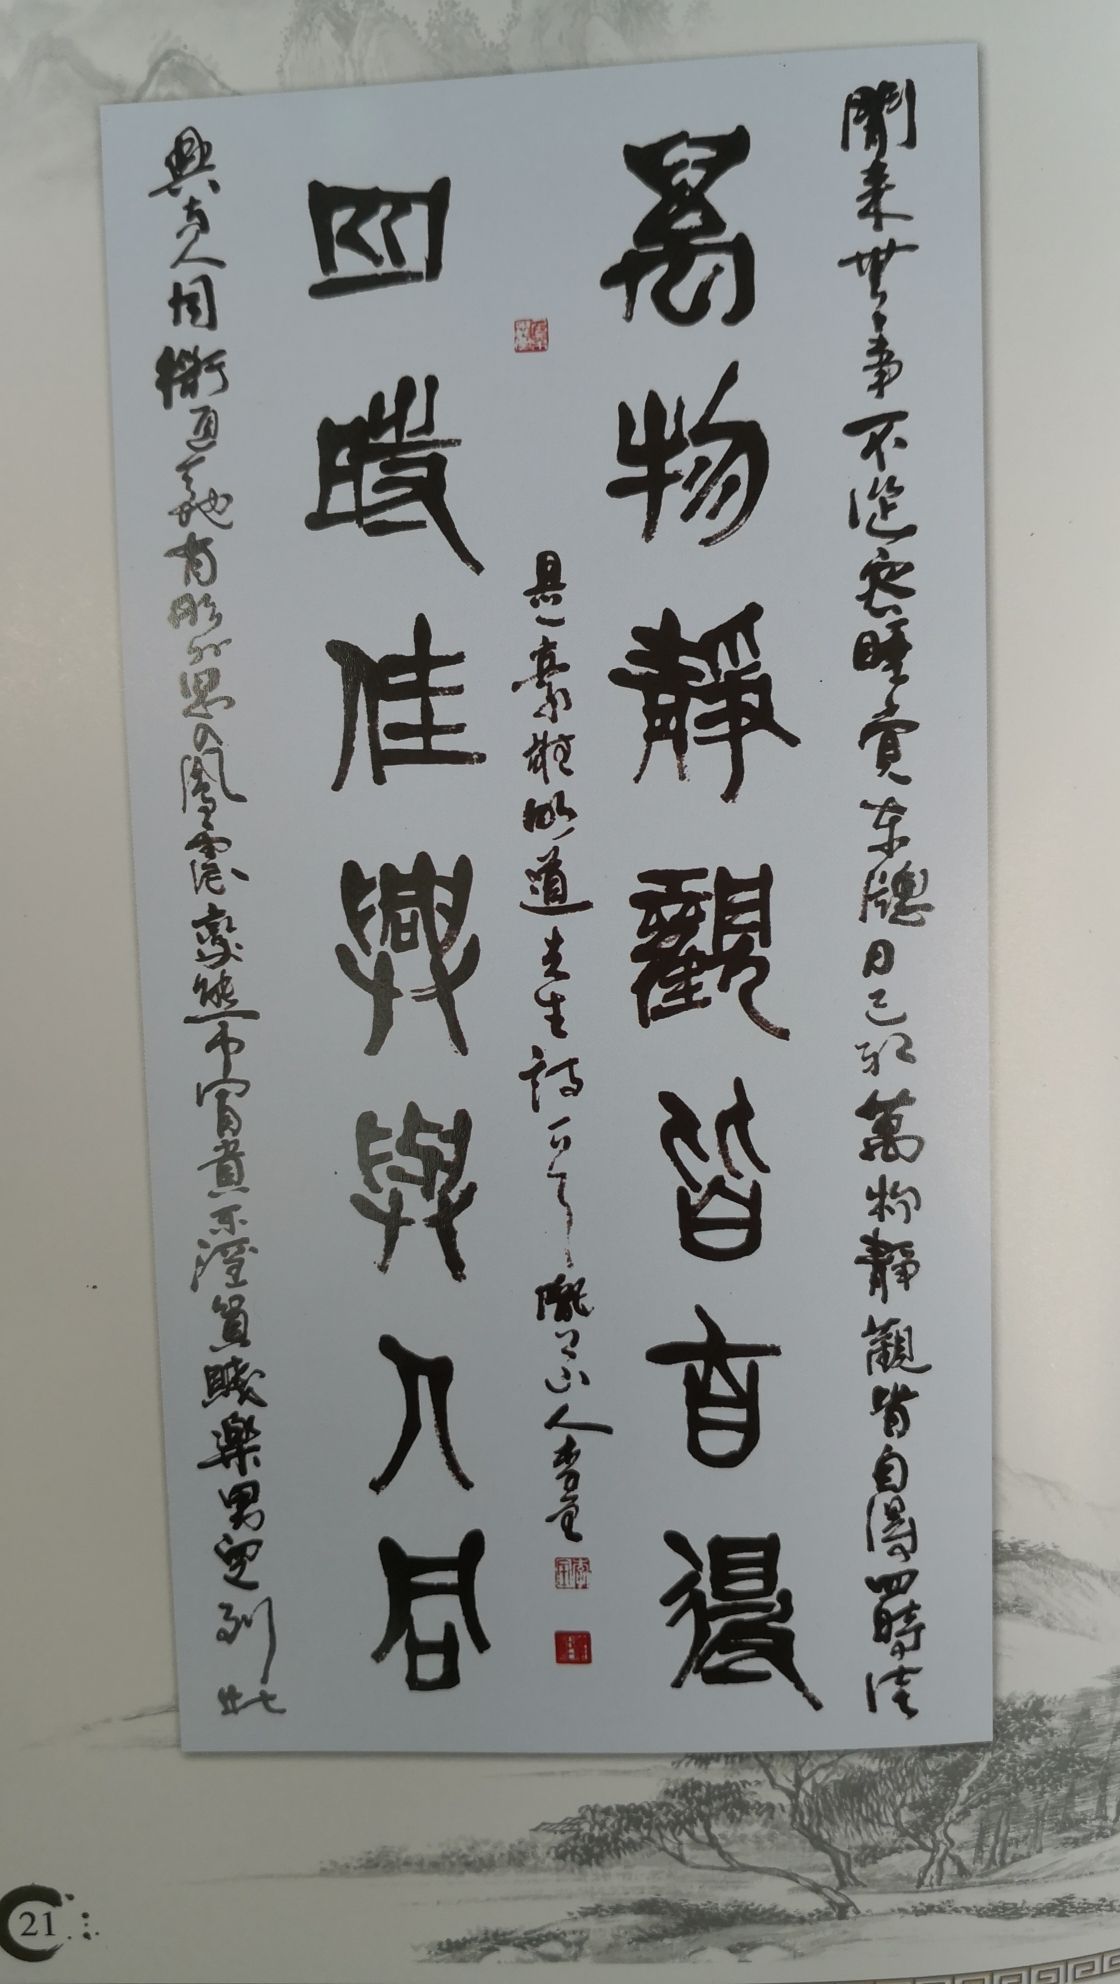 閒来無事不從容睡覺东窓日已紅萬物靜觀皆自得四時佳
萬物靜觀皆自得
四時佳興與人同
興与人同衜通天地有形外思入風雲變態中富貴不淫貧賤樂男兒到此
是豪雄明道先生詩一首隴上山人李
21